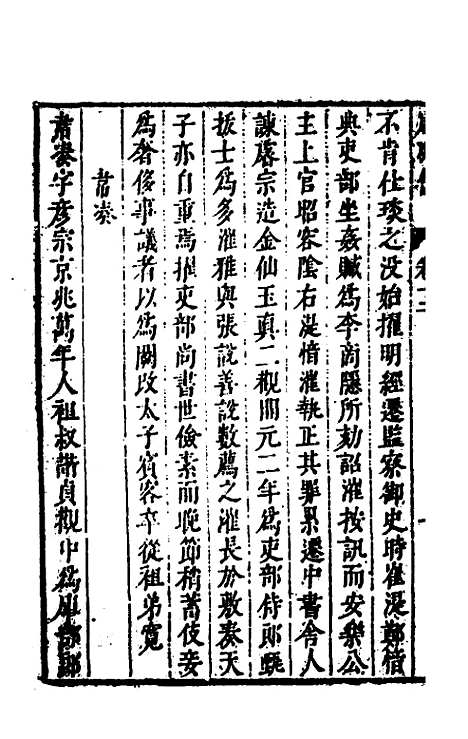 不肯仕琰之没始擢明經遷監察御史時崔湜鄭愔
典吏部坐姦贓為李商隱所劾詔漼按訊而安樂公
主上官昭容陰右湜愔漼執正其罪累遷中書舍人
諫睿宗造金仙玉真二觀開元二年為吏部侍郎甄
拔士為多漼雅與張說善說數薦之漼長於敷奏天
子亦自重焉擢吏部尚書世儉素而晚節稍蓄伎妾
為奢侈事議者以為闕改太子賓客卒從祖弟寬
韋湊
韋湊字彦宗京兆萬年人祖叔諧貞觀中為庫部郎